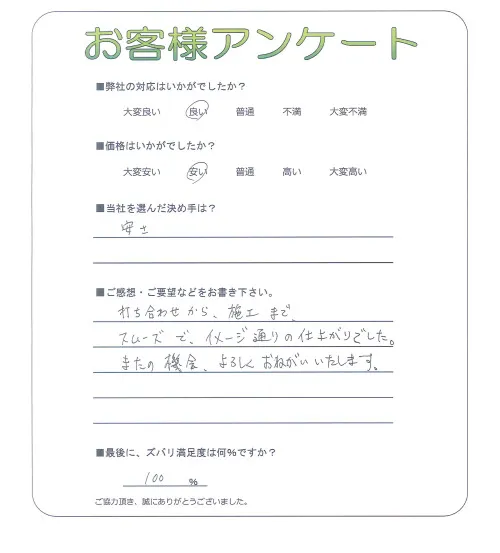 お客様アンケート
■弊社の対応はいかがでしたか？
大変良い 良い 普通 不満 大変不満
■価格はいかがでしたか？
大変安い 安い 普通 高い 大変高い
■当社を選んだ決め手は？
安さ
■ご感想・ご要望などをお書き下さい。
打ち合わせから、施工まで、
スムーズで、イメージ通りの仕上がりでした。
またの機会、よろしくおねがいいたします。
■最後に、ズバリ満足度は何%ですか？
100 %
ご協力頂き、誠にありがとうございました。